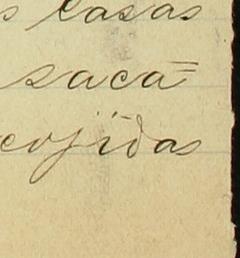 s casas
saca=
cojidas